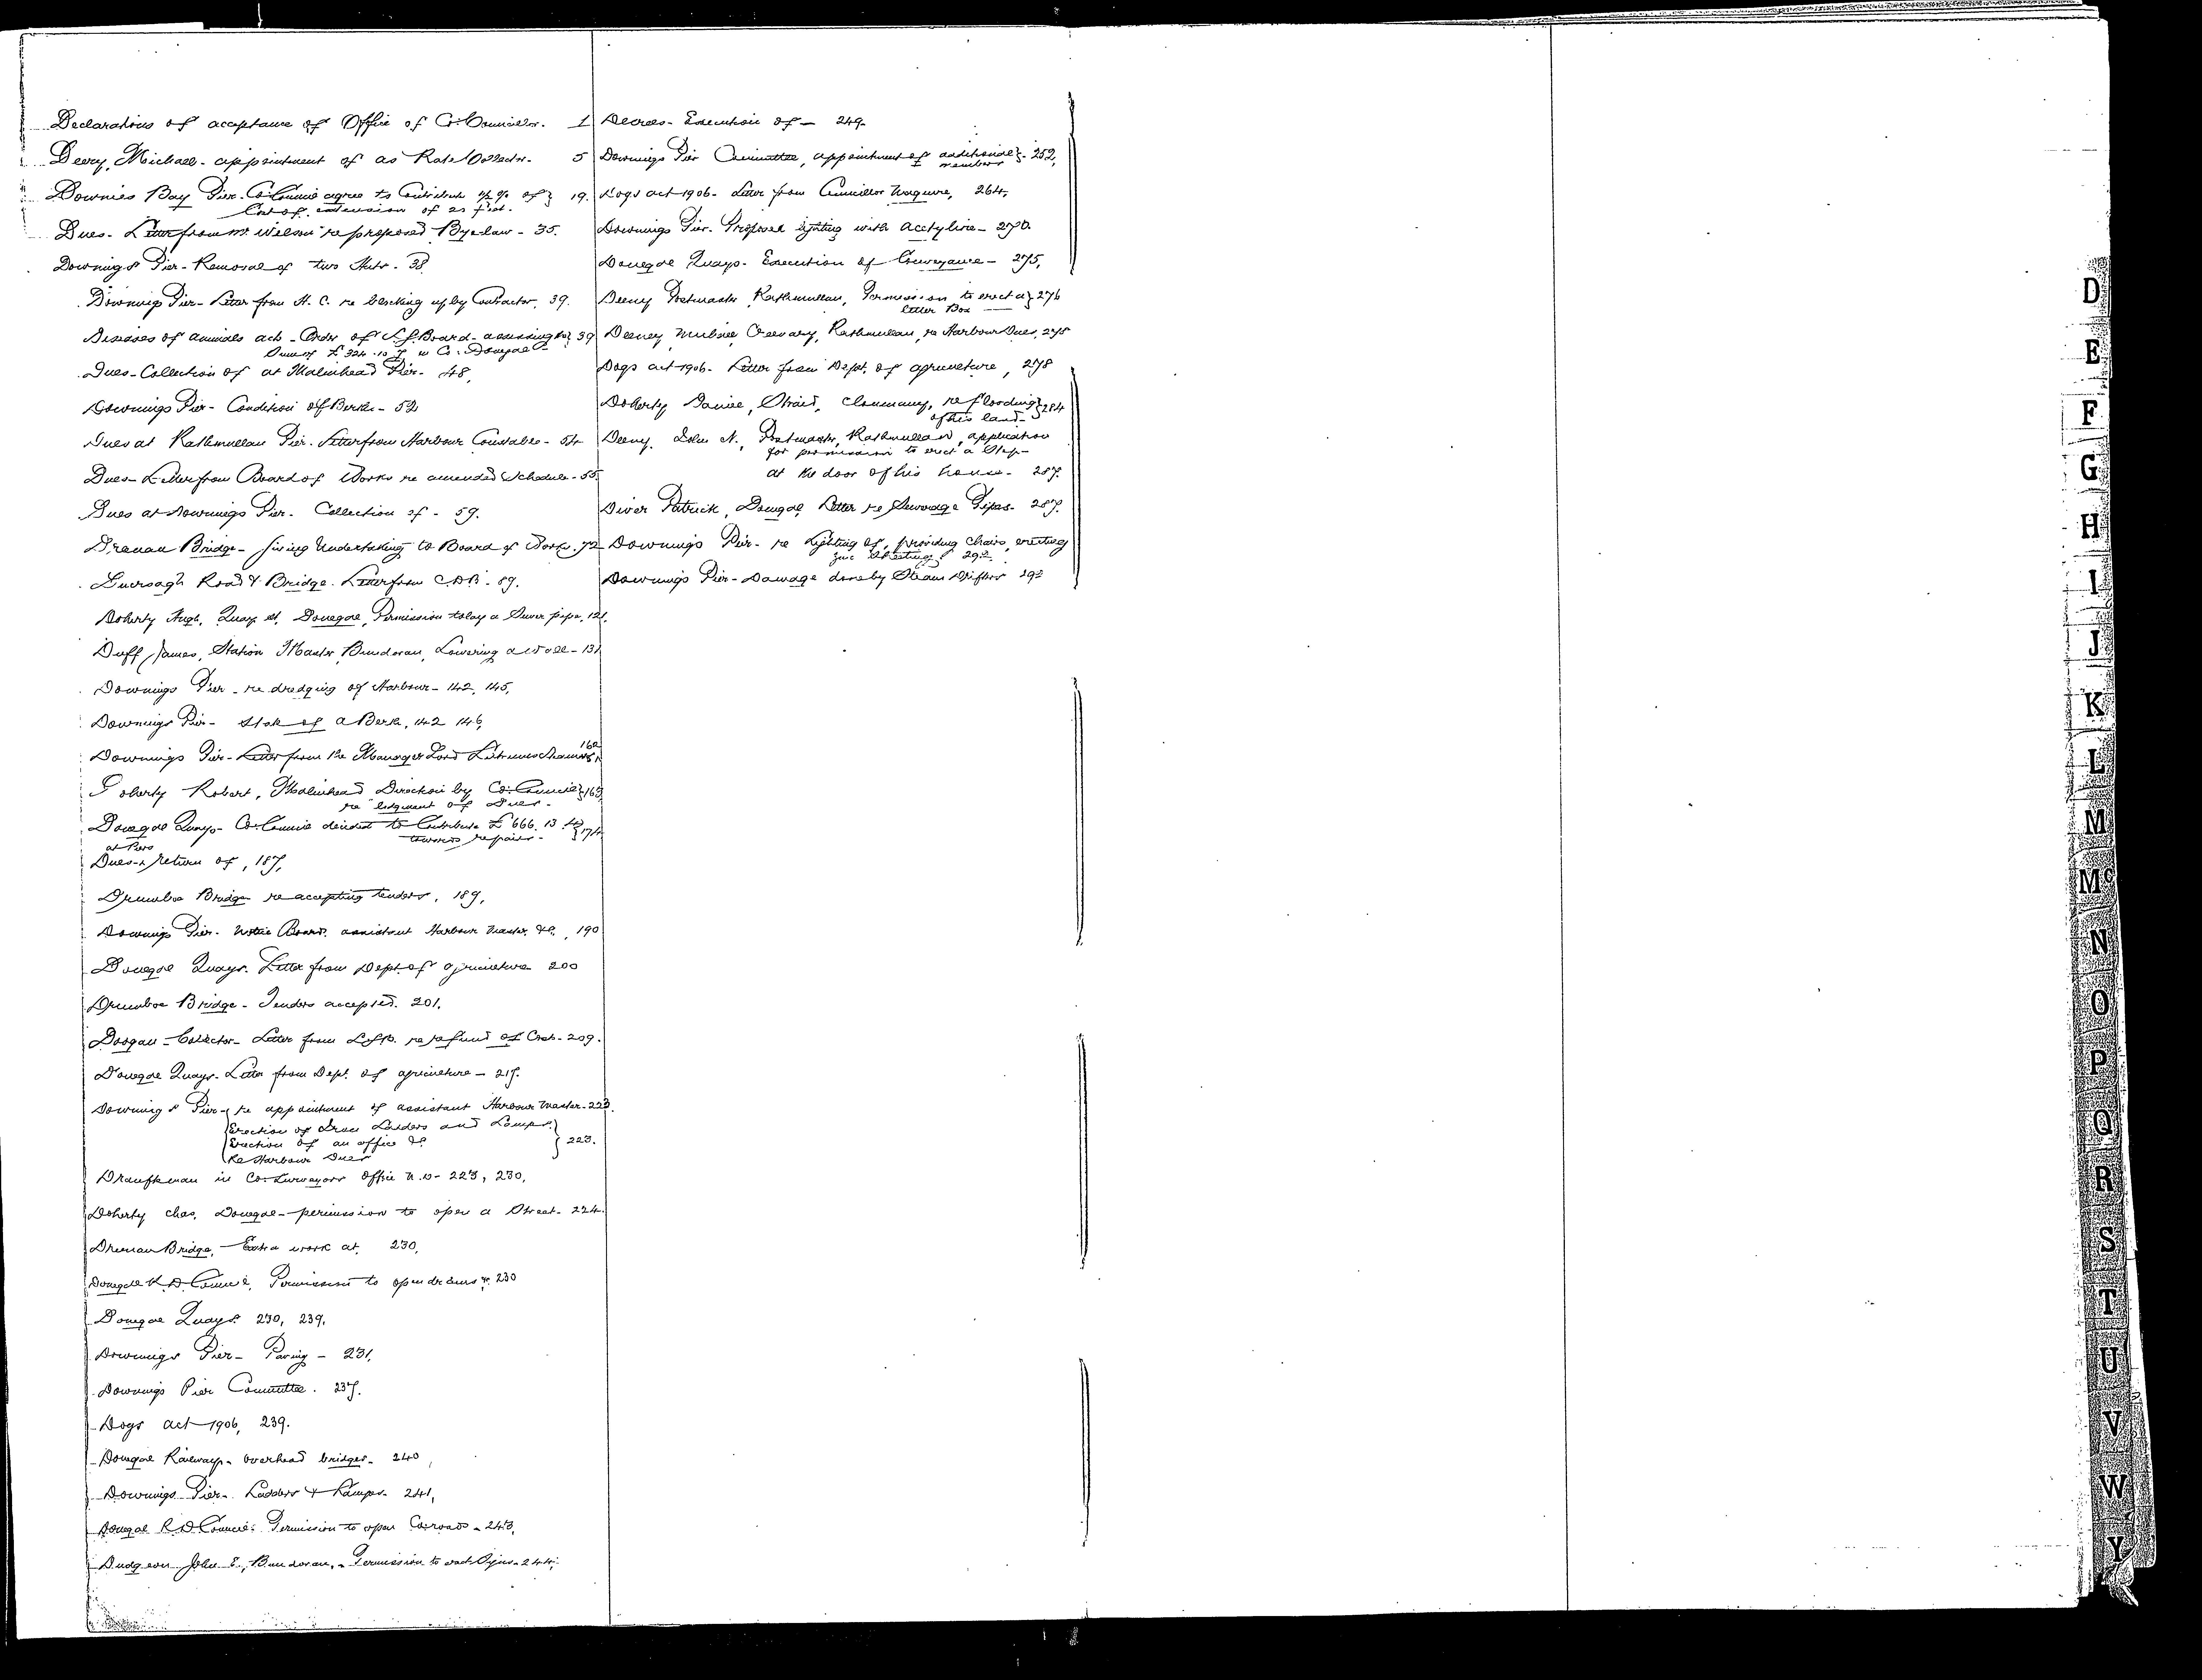 Declarations of acceptance of Office of Co: Councillor. 1
Deery, Michael - appointment of as Rate Collector. 5
Downies Bay Pier - Co: Council agree to Contribute of } 19.
Cost of extension of 20 feet.
Dues - Letter from Mr. Wilson re proposed Bye-law - 35.
Downings Pier - Removal of two Huts - 38.
Downings Pier - Letter from H. C. re blocking up by Contractor, 39.
Diseases of animals act - Order of L.G. Board - assessing the } 39
Sum of £ 324 . 10 . 7 in Co: Donegal -
Dues - Collection of at Malinhead Pier - 48,
Downings Pier - Condition of Berth - 52
Dues at Rathmullan Pier. Letter from Harbour Constable - 54
Dues - Letter from Board of Works re amended Schedule - 55.
Dues at Downings Pier. Collection of - 59.
Drenan Bridge - giving Undertaking to Board of Works. 72
Road & Bridge. Letter from C.D.B. - 89.
Doherty Hugh, Quay St. Donegal, Permission to lay a Sewer pipe, 121.
Duff James, Station Master, Bundoran, Lowering a wall - 131
Downings Pier - re dredging of Harbour - 142, 145,
Downings Pier - State of a Berth, 142 146,
Downings Pier - Letter from the Manager Lord Leitrim 162
Doherty Robert, Malinhead Direction by Co: Council } 163
re lodgment of Dues -
Donegal Quays - Co: Council decided to Contribute £ 666. 13. 4 } 174
towards repairs -
at Piers
Dues - return of, 187,
Drumboe Bridge re accepting tenders, 189,
Downings Pier. Notice Board. assistant Harbour Master &c., 190
Donegal Quays. Letter from Dept. of agriculture 200
Drumboe Bridge - Tenders accepted. 201.
Doogan - Collector - Letter from L.G.B. re refund of Cost - 209.
Donegal Quays - Letter from Dept. of agriculture - 217.
Downings Pier - { re appointment of assistant Harbour Master - 223.
Erection of Iron Ladders and Lamps. }
Erection of an office &c } 223.
Re Harbour Dues
Draughtsman in Co: Surveyors Office N.D - 223, 230,
Doherty Chas. Donegal - permission to open a Street - 224.
Drenan Bridge, - Extra work at, 230,
Donegal R. D. Council, Permission to open drains &c 230
Donegal Quays. 230, 239,
Downings Pier - Paving - 231,
Downings Pier Committee. 237.
Dogs act 1906, 239.
Donegal Railways - overhead bridges - 240,
Downings Pier - Ladders & Lamps - 241,
Donegal R. D. Council: Permission to open Co: roads - 243,
Dudgeon John E., Bundoran, - Permission to 244,
Decrees - Execution of - 249.
Downings Pier Committee, appointment of additional } - 252,
members
Dogs act 1906 - Letter from Councillor Maguire, 264,
Downings Pier - Proposed lighting with Acetyline - 270.
Donegal Quays - Execution of Conveyance - 275,
Deeny Postmaster Rathmullan, Permission to erect a } 276
letter Box
Deeney Creevary, Rathmullan, re Harbour Dues, 275
Dogs act 1906 - Letter from Dept. of agriculture, 278
Doherty Daniel, Straid, Clonmany, re flooding } 284
of his land -
Deeny, John N., Postmaster, Rathmullan, application
for permission to erect a Step -
at the door of his house - 287.
Diver Patrick, Donegal, Letter re Sewerage Pipes - 287.
Downings Pier - re lighting of, providing chairs, erecting
zinc sheeting 292
Downings Pier - Damage done by Steam Drifters 292
D
E
F
G
H
I
J
K
L
M
Mc
N
O
P
Q
R
S
T
U
V
W
Y